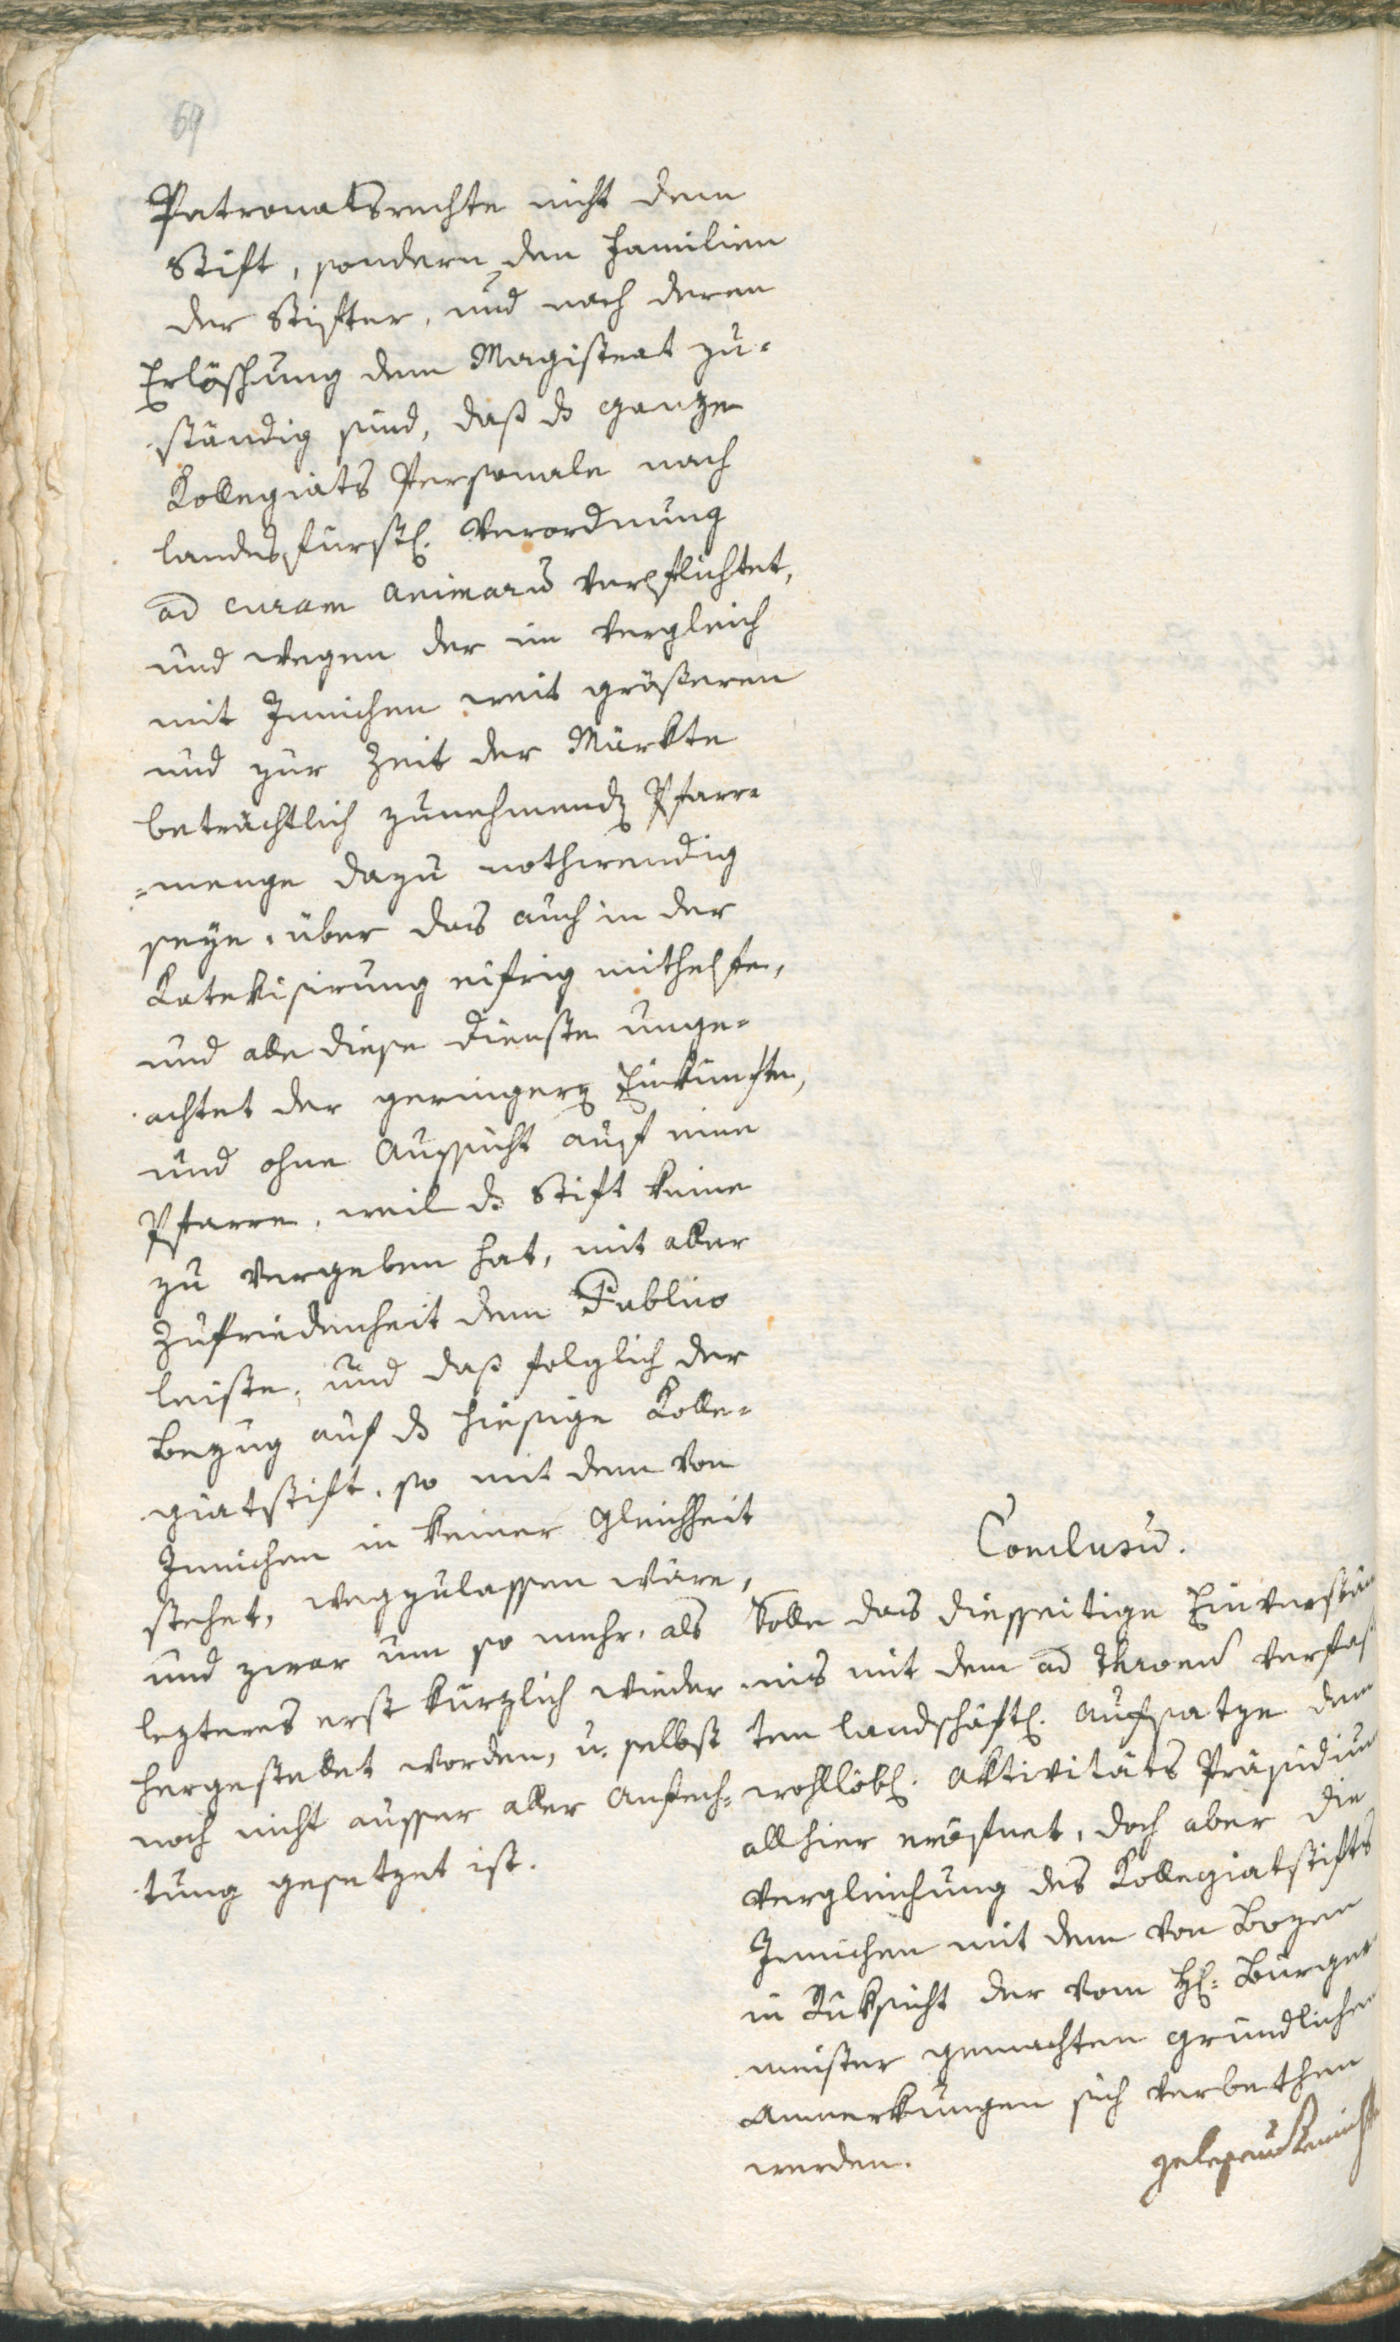 69
Patronatsrechte nicht dem
Stift, sondern den Familien
der Stifter, und nach deren
Erlöschung dem Magistrat zu-
ständig sind, daß ds ganze
Kollegiats Personale nach
landesfürstl. Verordnung
ad curam animarū verpflichtet,
und wegen der im Vergleich
mit Innichen weit größeren
und zur Zeit der Märkte
beträchtlich zunehmend Pfarr-
-menge dazu nothwendig
seye, über das auch in der
Katekisirung eifrig mithelfe,
und alle diese Dienste unge-
achtet der geringern Einkünften,
und ohne Aussicht auf eine
Pfarre, weil ds Stift keine
zu vergeben hat, mit aller
Zufriedenheit dem Publico
leiste, und daß folglich der
Bezug auf ds hiesige Kolle-
giatstift, so mit dem von
Innichen in keiner Gleichheit
stehet, wegzulassen wäre,
und zwar um so mehr, als
lezteres erst kürzlich wieder
hergestellet worden, u. selbst
noch nicht ausser aller Anfech-
tung gesetzet ist.
Conclusū.
Solle das diesseitige Einverständ
nis mit dem ad Thronū verfaß
ten landschäftl. Aufsatze dem
wohllöbl. Aktivitäts Präsidium
allhier eröfnet, doch aber die
Vergleichung des Kollegiatstifts
Innichen mit dem von Bozen
in Rüksicht der vom H: Bürger
meister gemachten gründlichen
Anmerkungen sich verbethen
werden.